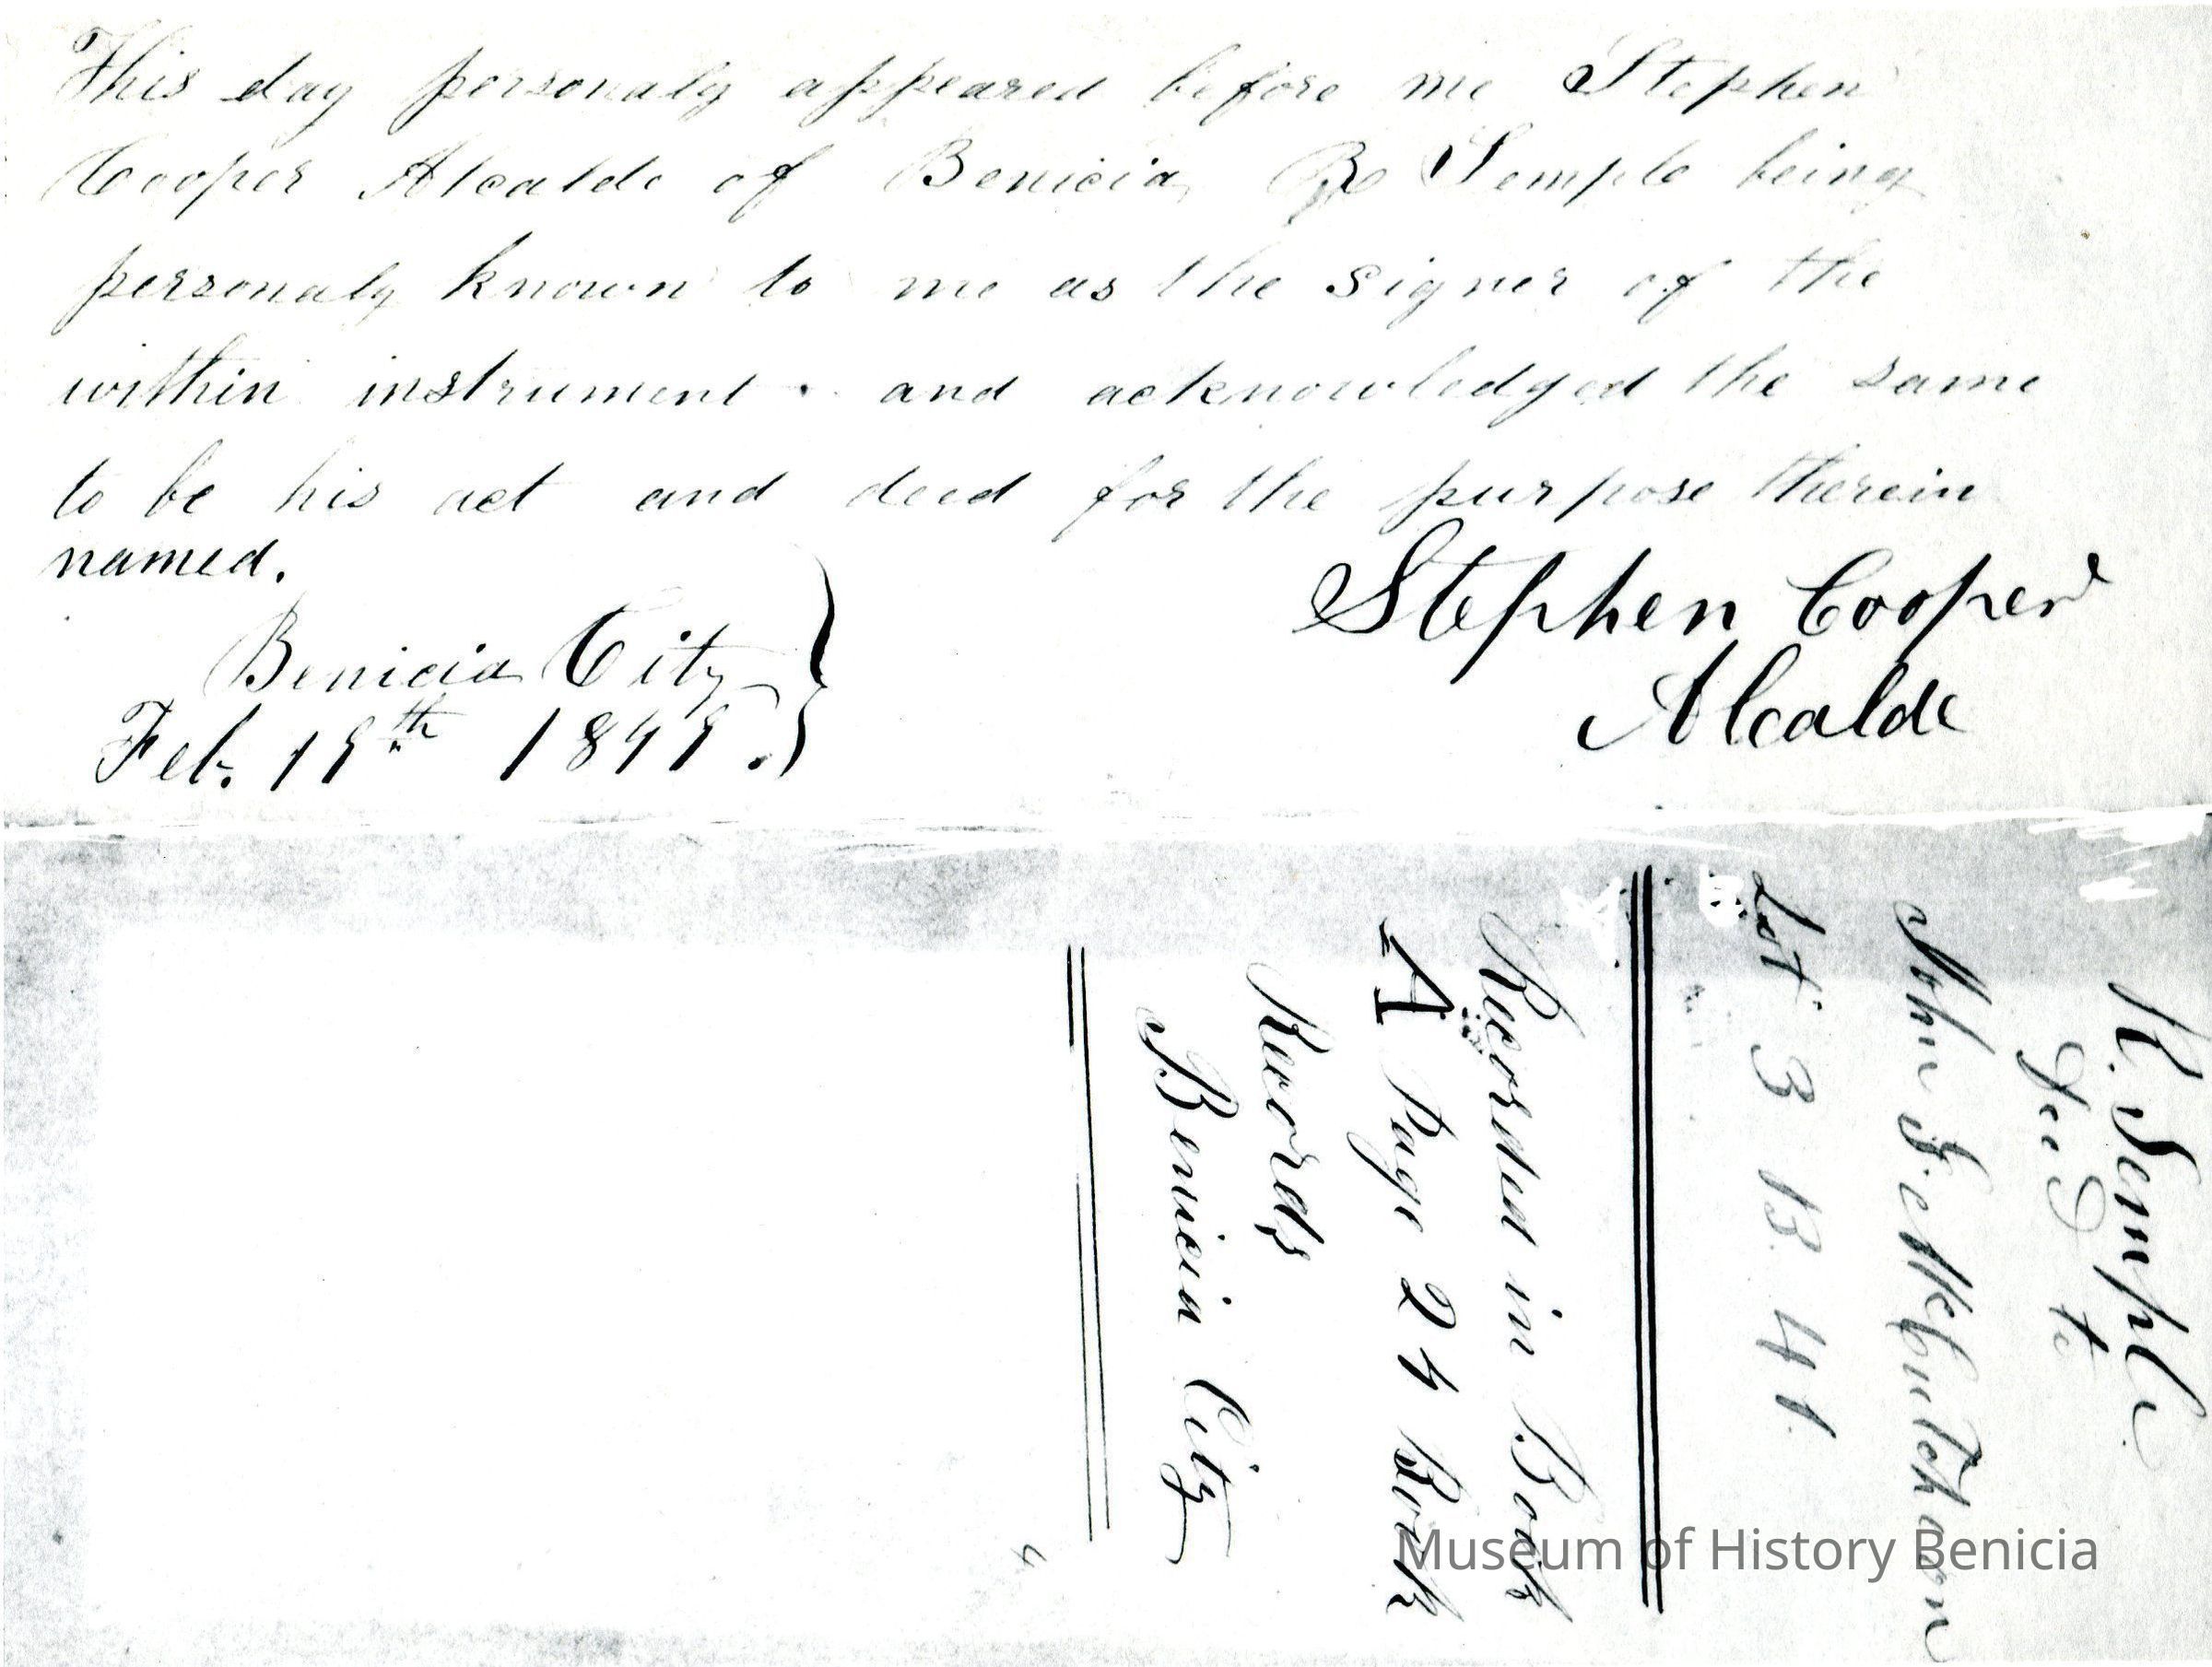 This day personaly appeared before me Stephen
Cooper Alcalde of Benicia, R Semple being
personaly known to me as the signer of the
within instrument and acknowledged the same
to be his act and deed for the purpose therein
named.
Stephen Cooper
Alcalde
Benicia City
Feb. 19th 1849.
R. Semple
to
John S. McCutcheon
Lot 3 B. 41
Recorded in Book
A Page 24 Book
Records
Benicia City
4
Museum of History Benicia